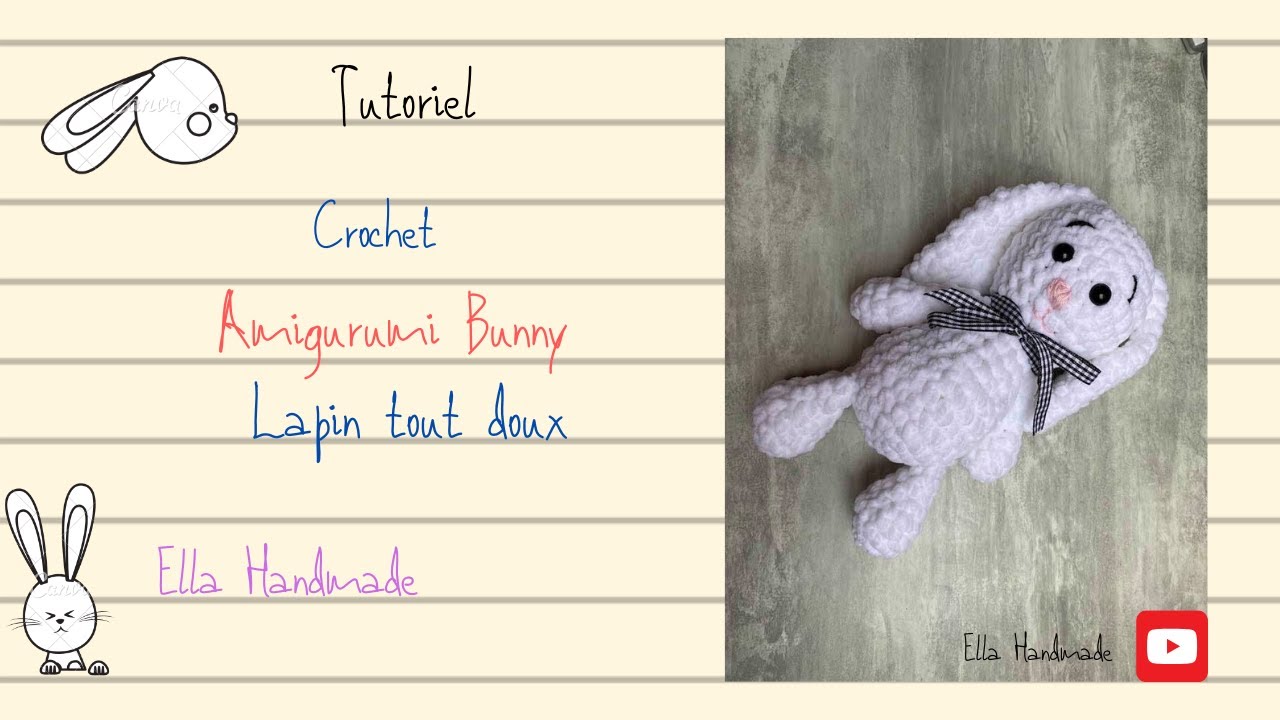 Tutoriel
Crochet
Amigurumi Bunny
Lapin tout doux
Ella Handmade
Ella Handmade
Canva
Canva